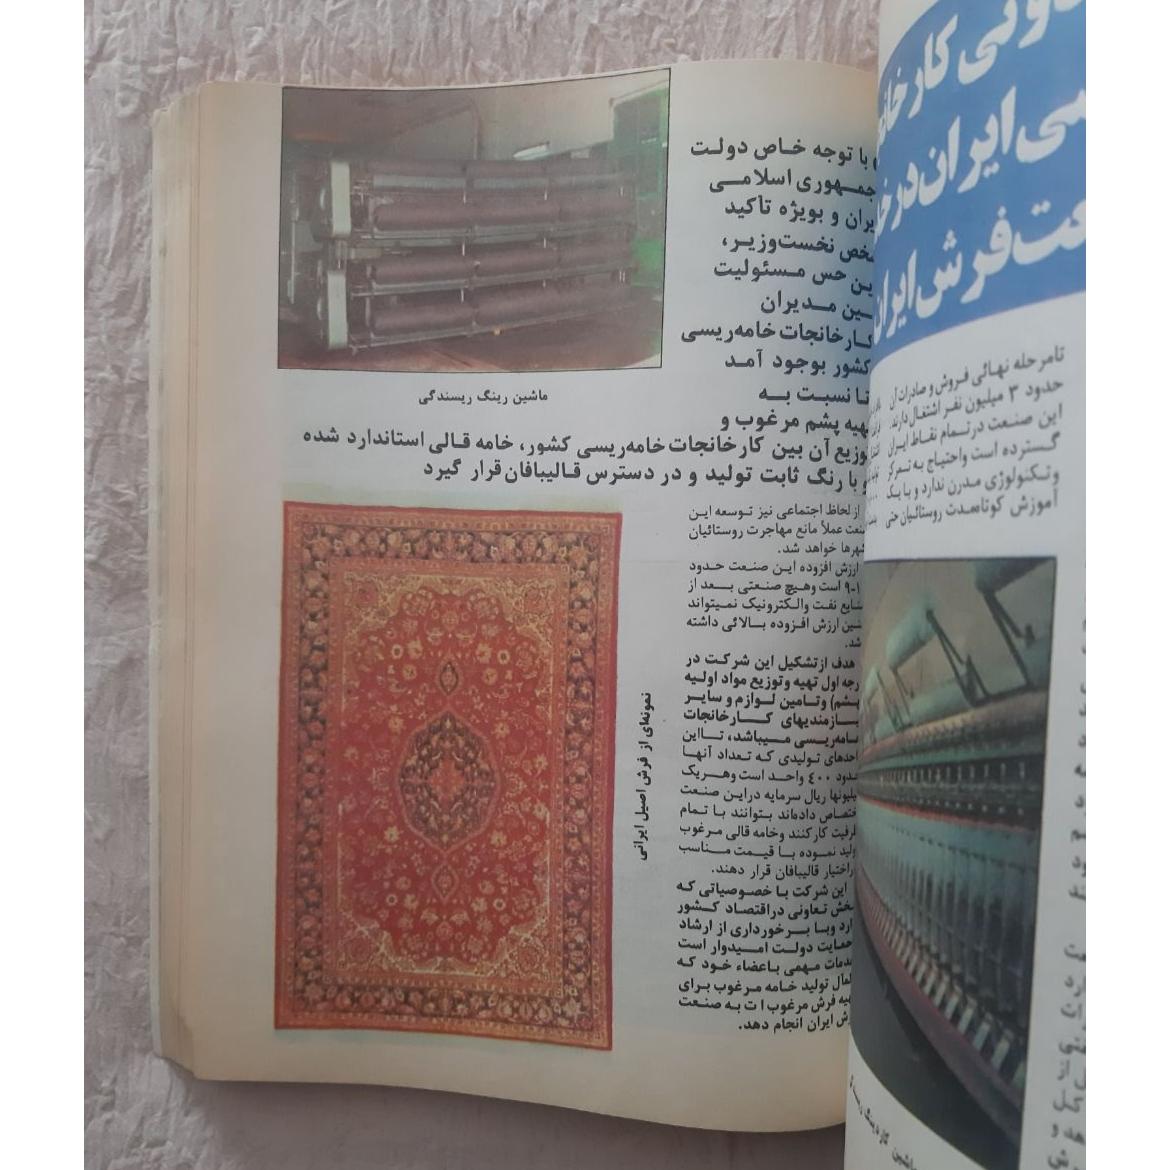 تعاونی کارخانه
ایران در
فرش ایران
تامرحله نهائی فروش و صادرات آن
حدود ۳ میلیون نفر اشتغال دارند.
این صنعت درتمام نقاط ایران
گسترده است واحتیاج به تمرکز
وتکنولوژی مدرن ندارد و با یک
آموزش کوتاه‌مدت روستائیان حتی
ماشین کاردینگ
با توجه خاص دولت
جمهوری اسلامی
ایران و بویژه تأکید
شخص نخست‌وزیر،
این حس مسئولیت
بین مدیران
کارخانجات خامه‌ریسی
کشور بوجود آمد
تا نسبت به
تهیه پشم مرغوب و
توزیع آن بین کارخانجات خامه‌ریسی کشور، خامه قالی استاندارد شده
و با رنگ ثابت تولید و در دسترس قالیبافان قرار گیرد
ماشین رینگ ریسندگی
از لحاظ اجتماعی نیز توسعه این
صنعت عملاً مانع مهاجرت روستائیان
شهرها خواهد شد.
ارزش افزوده این صنعت حدود
است وهیچ صنعتی بعد از
صنایع نفت والکترونیک نمیتواند
چنین ارزش افزوده بالائی داشته
باشد.
هدف ازتشکیل این شرکت در
درجه اول تهیه وتوزیع مواد اولیه
(پشم) وتامین لوازم و سایر
نیازمندیهای کارخانجات
خامه‌ریسی میباشد، تااین
واحدهای تولیدی که تعداد آنها
حدود ۴۰۰ واحد است وهریک
میلیونها ریال سرمایه دراین صنعت
اختصاص داده‌اند بتوانند با تمام
ظرفیت کارکنند وخامه قالی مرغوب
تولید نموده با قیمت مناسب
دراختیار قالیبافان قرار دهند.
این شرکت با خصوصیاتی که
بخش تعاونی دراقتصاد کشور
دارد وبا برخورداری از ارشاد
وحمایت دولت امیدوار است
خدمات مهمی باعضاء خود که
تولید خامه مرغوب برای
تهیه فرش مرغوب است به صنعت
فرش ایران انجام دهد.
نمونه‌ای از فرش اصیل ایرانی